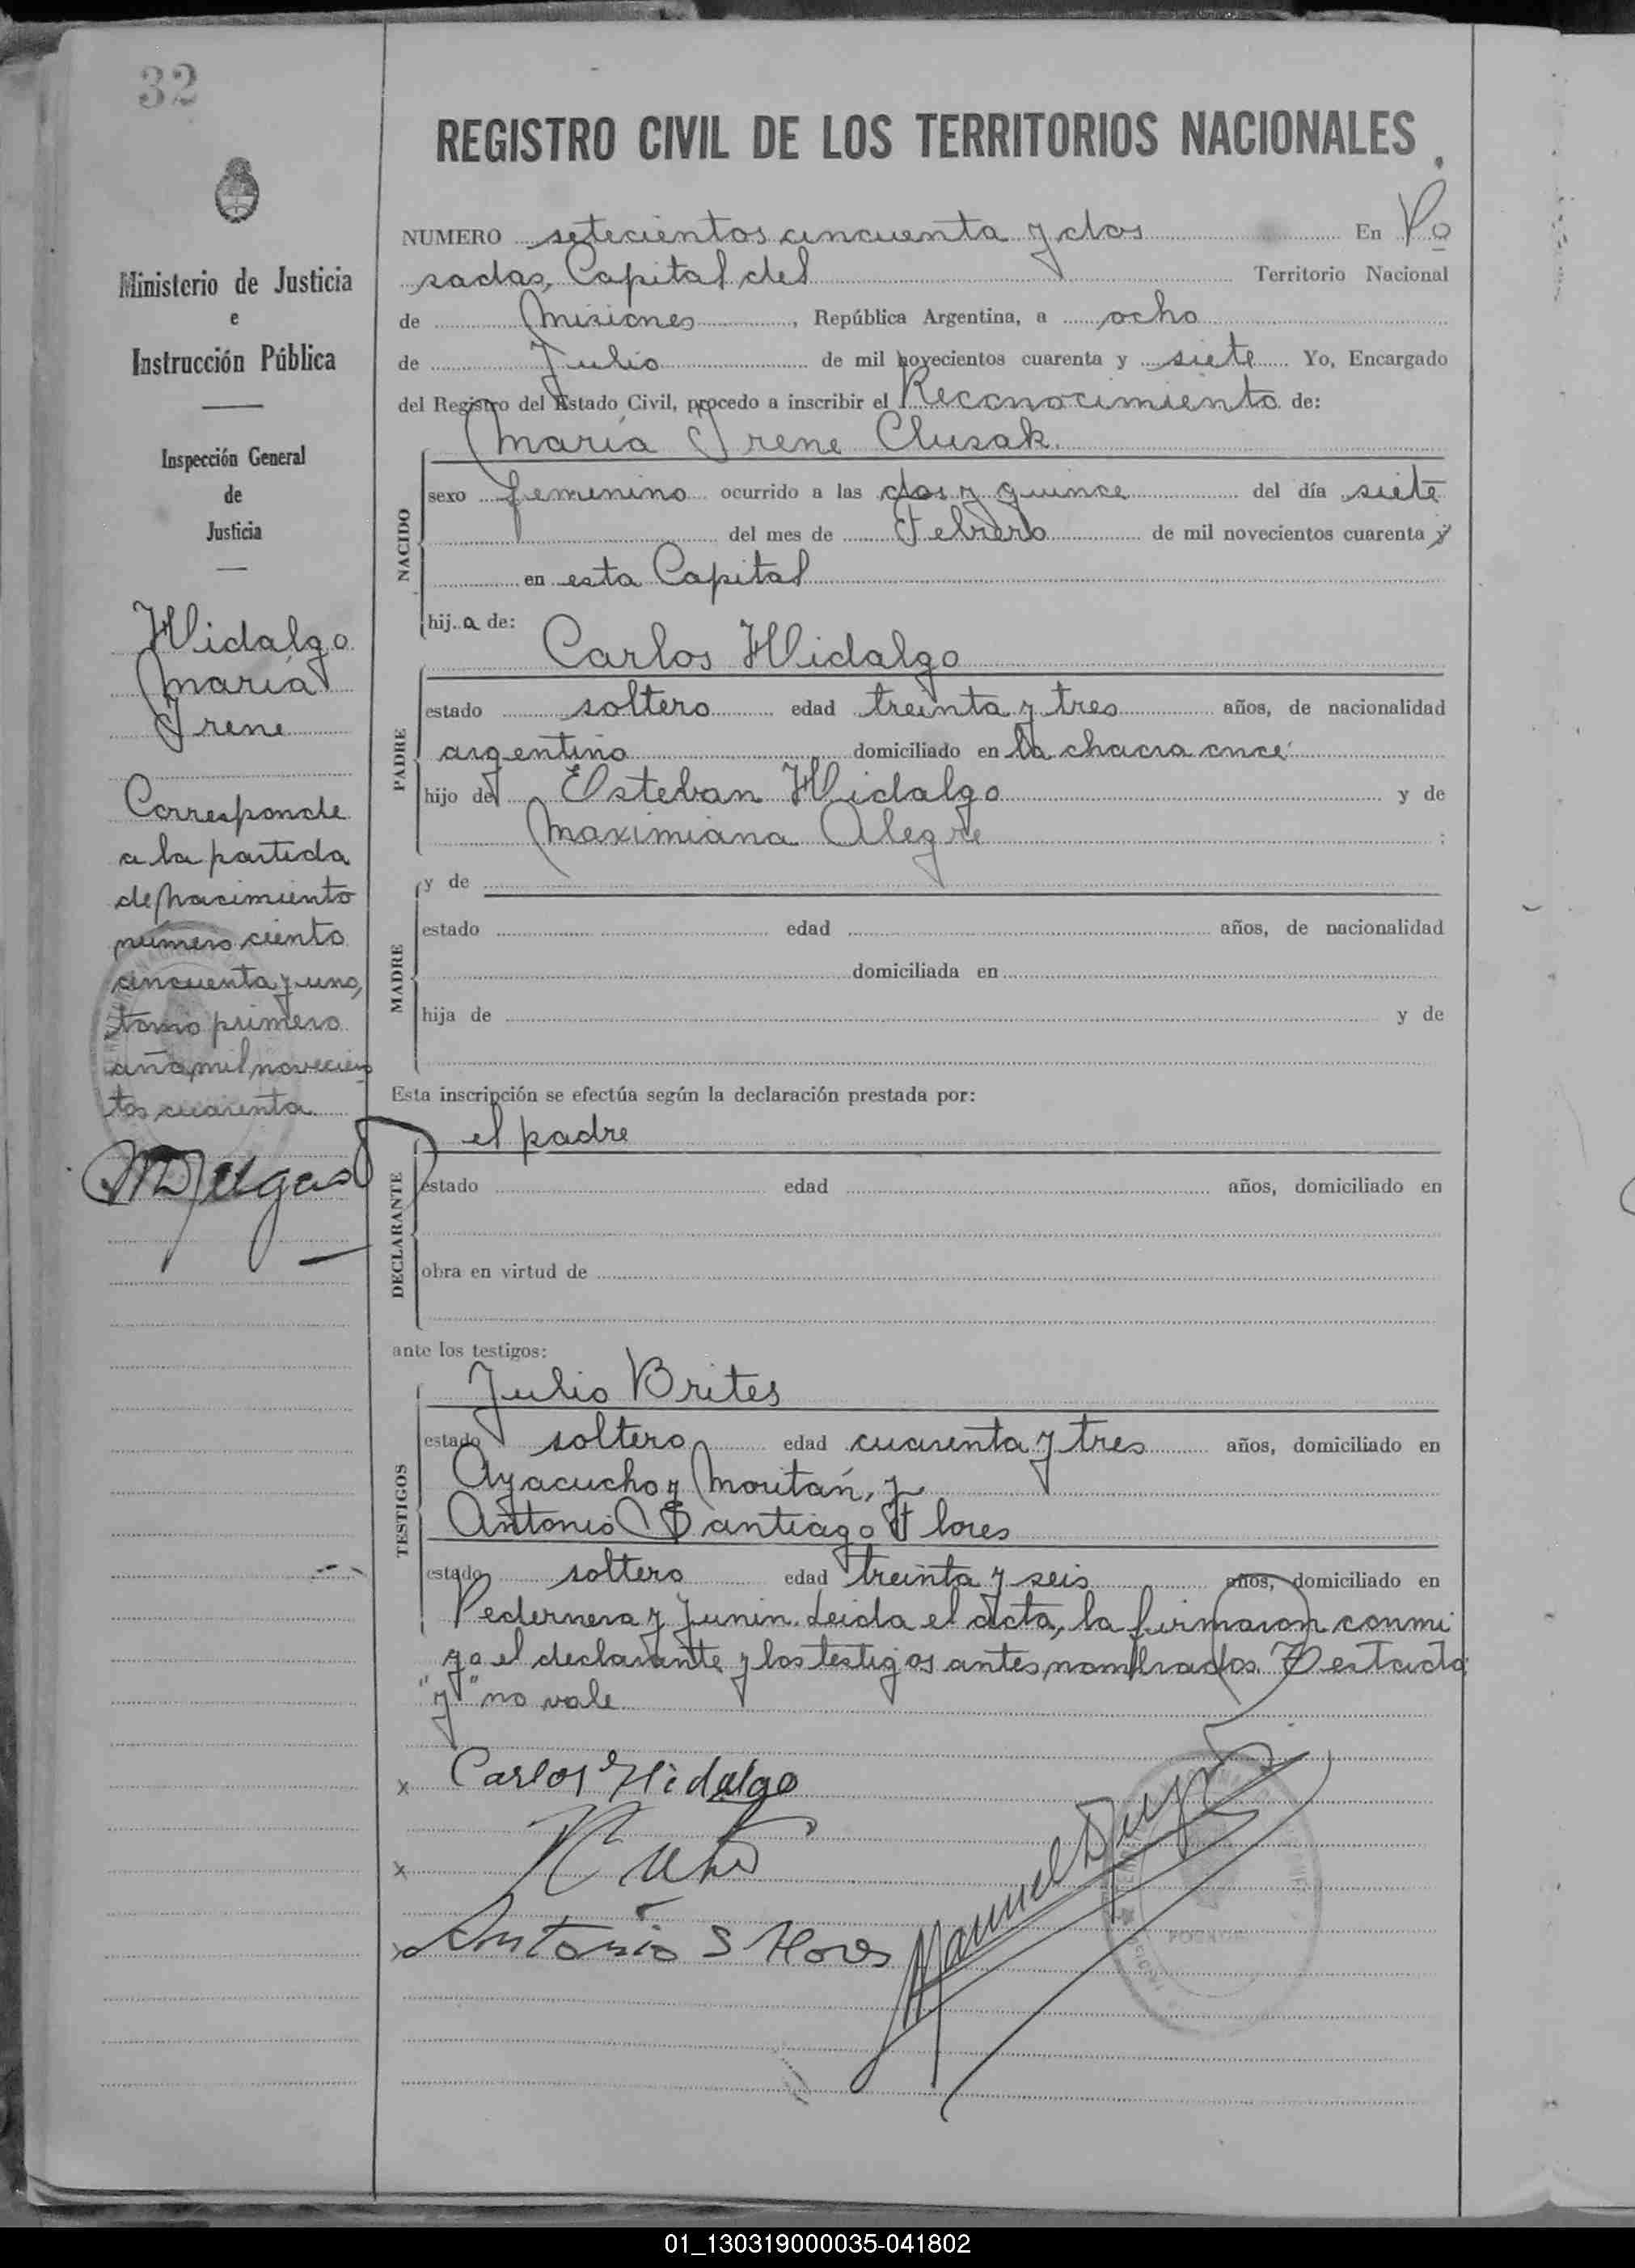 32
REGISTRO CIVIL DE LOS TERRITORIOS NACIONALES
Ministerio de Justicia
e
Instrucción Pública
Inspección General
de
Justicia
Hidalgo
María
Irene
Corresponde
a la partida
de nacimiento
número ciento
cincuenta y uno,
tomo primero
año mil novecien
tos cuarenta
NUMERO setecientos cincuenta y dos En Po
sadas, Capital del Territorio Nacional
de Misiones, República Argentina, a ocho
de Julio de mil novecientos cuarenta y siete Yo, Encargado
del Registro del Estado Civil, procedo a inscribir el Reconocimiento de:
María Irene Clusak.
NACIDO
sexo femenino ocurrido a las dos y quince del día siete
del mes de Febrero de mil novecientos cuarenta y
en esta Capital
hij a de:
Carlos Hidalgo
PADRE
estado soltero edad treinta y tres años, de nacionalidad
argentino domiciliado en la chacra once
hijo de Esteban Hidalgo y de
Maximiana Alegre ;
MADRE
y de
estado edad años, de nacionalidad
domiciliada en
hija de y de
Esta inscripción se efectúa según la declaración prestada por:
el padre
DECLARANTE
estado edad años, domiciliado en
obra en virtud de
ante los testigos:
Julio Brites
TESTIGOS
estado soltero edad cuarenta y tres años, domiciliado en
Ayacucho y Moritán, y
Antonio Santiago Flores
estado soltero edad treinta y seis años, domiciliado en
Pedernera y Junin. Leida el acta, la firmaron conmi
go el declarante y los testigos antes nombrados. Testado
"y" no vale
x Carlos Hidalgo
x
x Antonio S Flores
Manuel
01_130319000035-041802